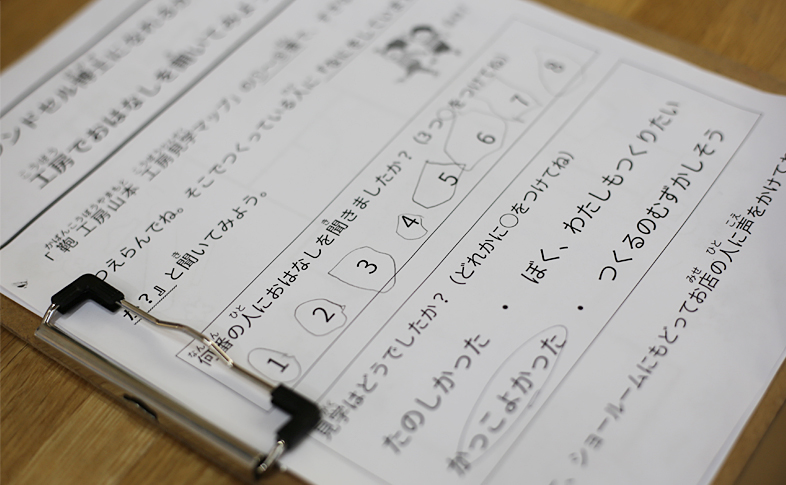 ンドセル博士になれるか
工房でおはなしを聞いてみよう
「鞄工房山本 工房見学マップ」の
つえらんでね。そこでつくっている人に
か？』と聞いてみよう。
何番の人におはなしを聞きましたか？（3つ○をつけてね）
1 2 3 4 5 6 7 8
見学はどうでしたか？（どれかに○をつけてね）
たのしかった ・ ぼく、わたしもつくりたい
かっこよかった ・ つくるのむずかしそう
、ショールームにもどってお店の人に声をかけてね